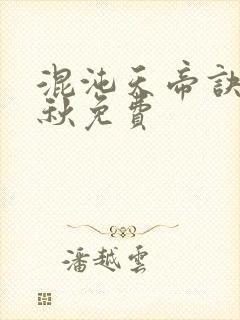 混沌天帝訣
秋免費
潘越雲